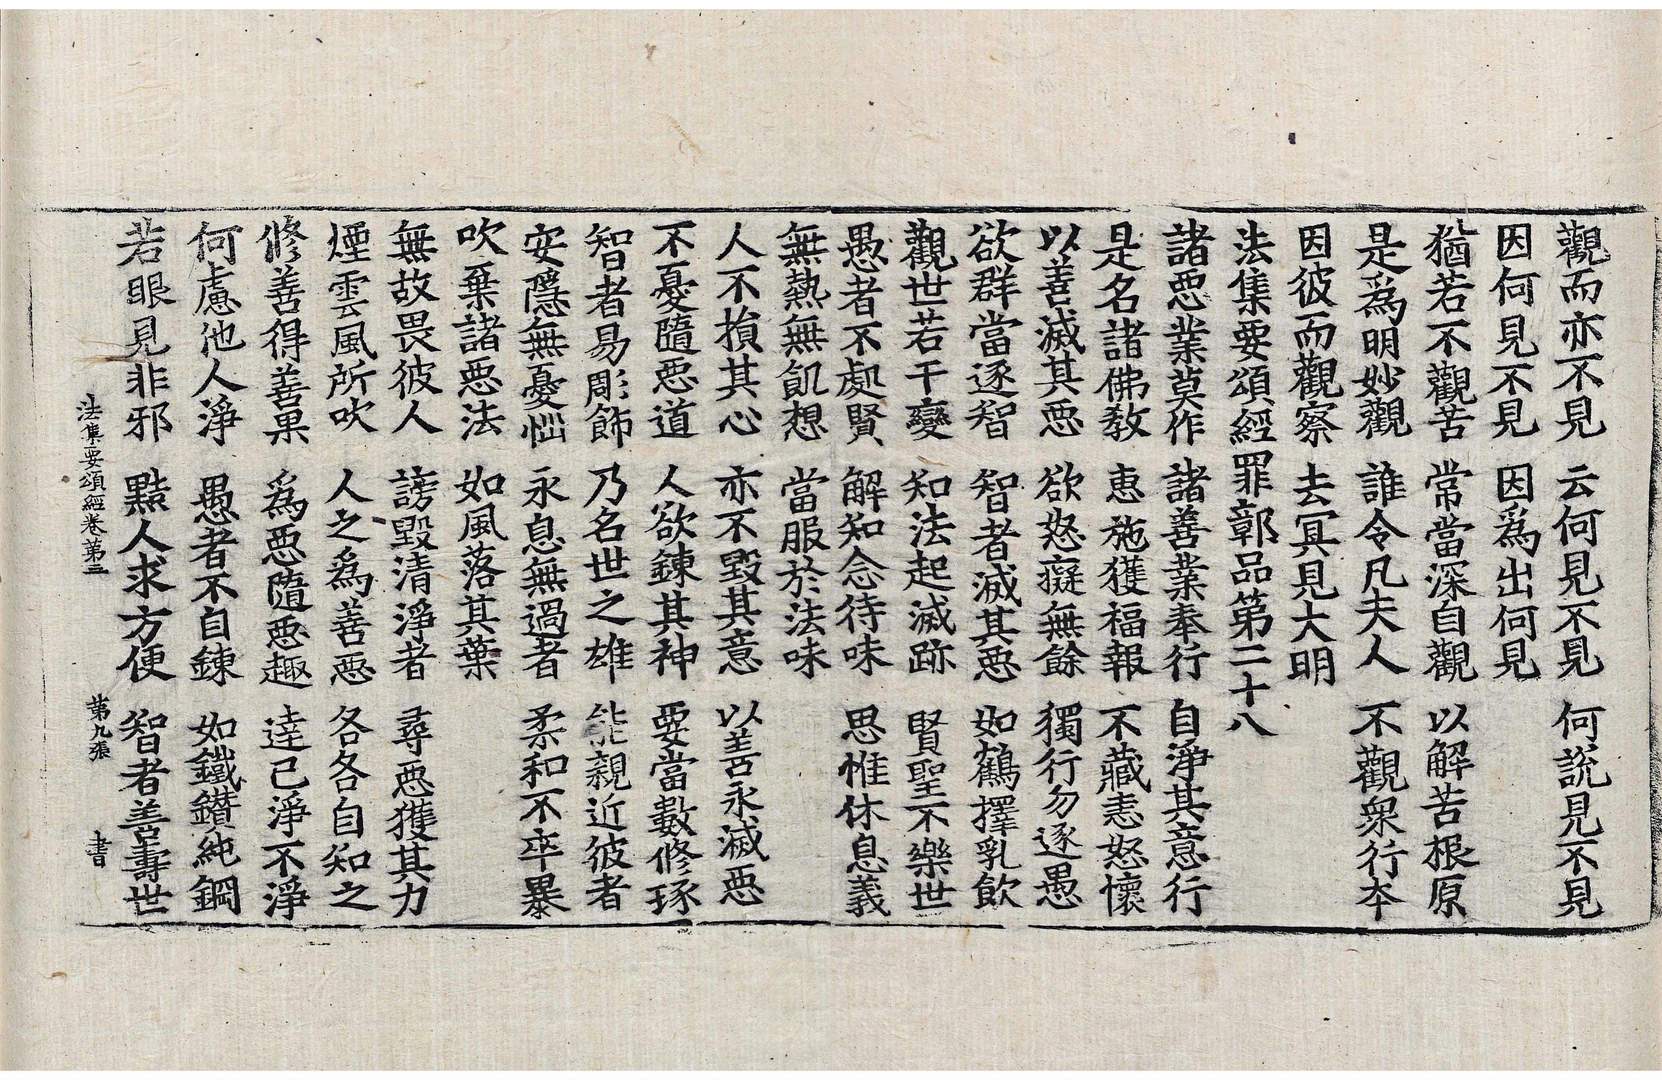 觀而亦不見 云何見不見 何說見不見
因何見不見 因爲出何見
猶若不觀苦 常當深自觀 以解苦根原
是爲明妙觀 誰令凡夫人 不觀衆行夲
因彼而觀察 去冥見大明
法集要頌經罪鄣品第二十八
諸惡業莫作 諸善業奉行 自淨其意行
是名諸佛教 惠施獲福報 不藏恚怒懷
以善滅其惡 欲怒癡無餘 獨行勿逐愚
欲群當逐智 智者滅其惡 如鶴擇乳飲
觀世若干變 知法起滅跡 賢聖不樂世
愚者不處賢 解知念待味 思惟休息義
無熱無飢想 當服於法味
人不損其心 亦不毀其意 以善永滅惡
不憂隨惡道 人欲鍊其神 要當數修琢
智者易彫飾 乃名世之雄 能親近彼者
安隱無憂惱 永息無過者 柔和不卒暴
吹棄諸惡法 如風落其葉
無故畏彼人 謗毀清淨者 尋惡獲其力
煙雲風所吹 人之爲善惡 各各自知之
修善得善果 爲惡隨惡趣 達己淨不淨
何慮他人淨 愚者不自鍊 如鐵鑽純鋼
若眼見非邪 黠人求方便 智者善壽世
法集要頌經卷第三 第九張 書